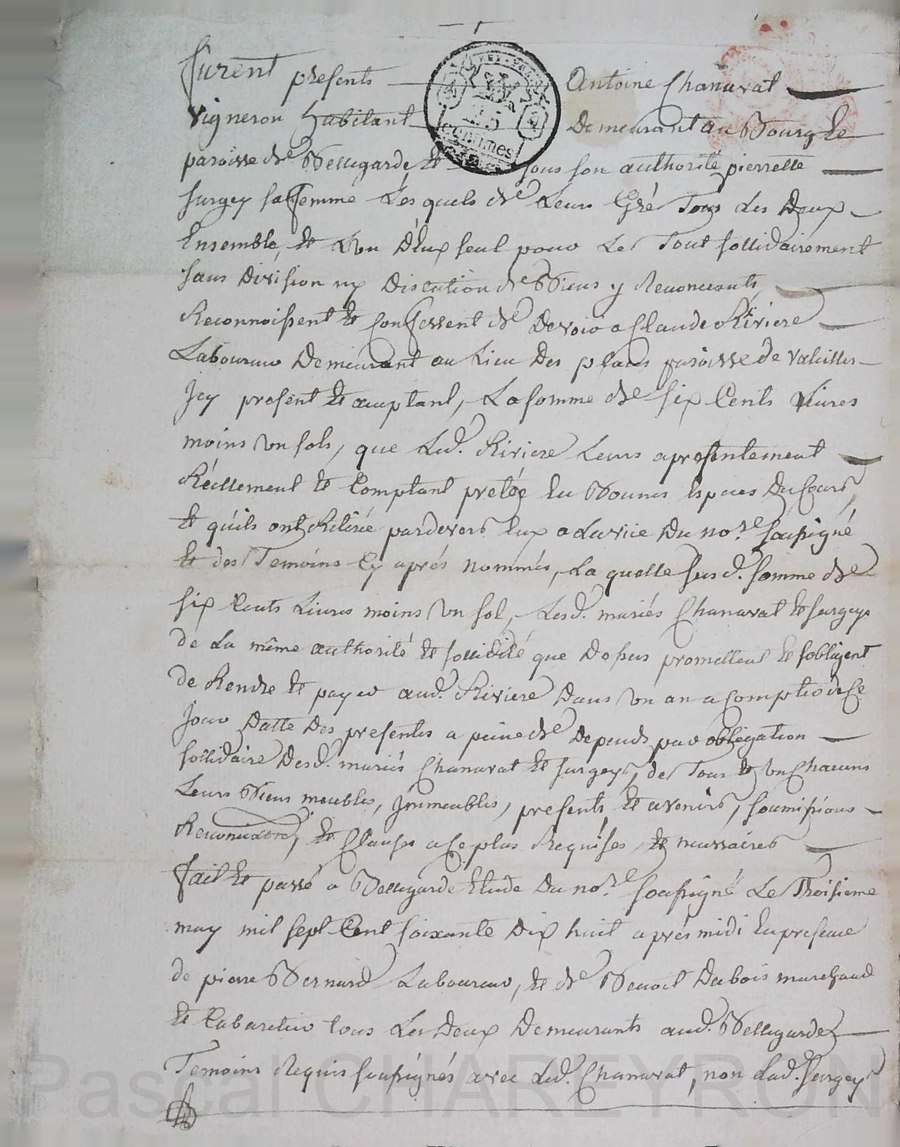 furent presents Antoine Chanavat
vigneron habitant Demeurant au Bourg &
paroisse de Bellegarde & sous son authorité pierrette
surgey sa femme Lesquels de Leurs Gré Tous Les Deux
Ensemble, & L'un d'Eux seul pour Le Tout sollidairement
sans Division ny Discution de Biens y Renonceants
Reconnoissent & Confessent de Devoir a Claude Riviere
Laboureur Demeurant au Lieu Des places paroisse de
Icy present & acceptant, La somme de six Cents Livres
moins un sols, que Led. Riviere Leurs a presentement
Réellement & Comptant prétée En Bonnes Especes Du Cours,
& qu'ils ont Retirée pardevers Eux a La vüe Du no.re soussigné
& des Temoins Cy aprés nommés, La quelle susd. somme de
six Cents Livres moins un sol, Lesd. mariés Chanavat & surgeys
de La même authorité & sollidité que Dessus promettent & s'obligent
de Rendre & payer aud. Riviere Dans un an a Compter de Ce
Jour Datte Des presentes a peine de Depends par obligation
sollidaire Desd. mariés Chanavat & surgeys, de Tous & un Chacuns
Leurs Biens meubles, Immeubles, presents & avenirs, soumissions
Renonciations, & Clauses a Ce plus Requises & necessaires
fait & passé a Bellegarde Etude Du no.re soussigné Le Troisieme
may mil sept Cent soixante Dix huit aprés midi En presence
de pierre Bernard Laboureur, & de Benoit Dubois marchand
& Cabaretier tous Les Deux Demeurants aud. Bellegarde
Temoins Requis soussignés avec Led. Chanavat, non Lad. surgeys
Pascal CHAREYRON